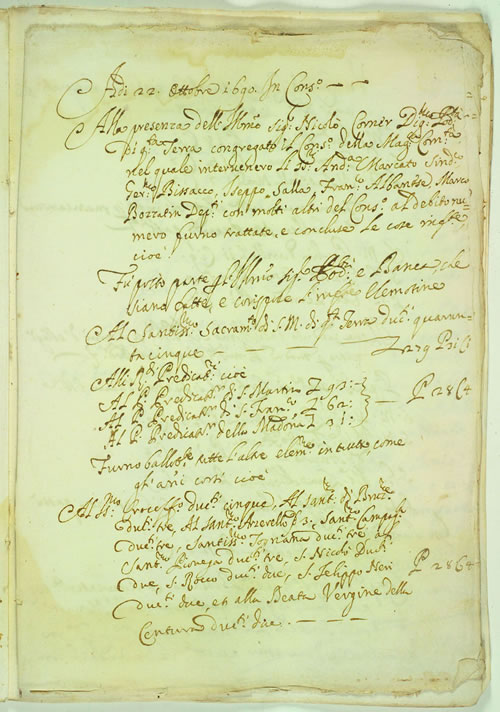 Adi 22. Ottobre 1690. In Cons.o
Alla presenza dell'Ill.mo Sig.r Nicolò Corner Dig.mo
di q.ta Terra congregato il Cons.o della Mag.ca Com.tà
nel quale intervenero li And.a Marcato Sind.o
Bissacco, Iseppo, Salla, Fran.co Albanese, Marco
Bozzatin Dep.ti con molti altri del Cons.o al debito nu-
mero furno trattate, e concluse le cose
cioè
Fu posto parte Ill.mo Sig.r Pod.tà e Banca, che
siano fatte, e corispste l'infte Elemosine
Al Santiss.o Sacram.to di S. M. di q.ta Terra duc.ti quaran-
ta cinque
Alli Predicat.ri cioè
Al P. Predicat.r di S. Martin
Al P. Predicat.r di S. Fran.co 62:
Al P. Predicat.r della Madona 31:
P 286
Furno ballot.te tutte l'altre elem.e in tutto, come
gl'anni corsi cioè
Al Croceffo duc.ti cinque, Al Sant.o di
duc.ti tre, Al Sant.o 3: Sant.o
duc.ti tre, Santiss.o duc.ti tre, al
Sant.o duc.ti tre, S. Nicolò duc.ti
due, S. Rocco duc.ti due, S. Filippo Neri
P 286
duc.ti due, et alla Beata Vergine della
Centura duc.ti due.